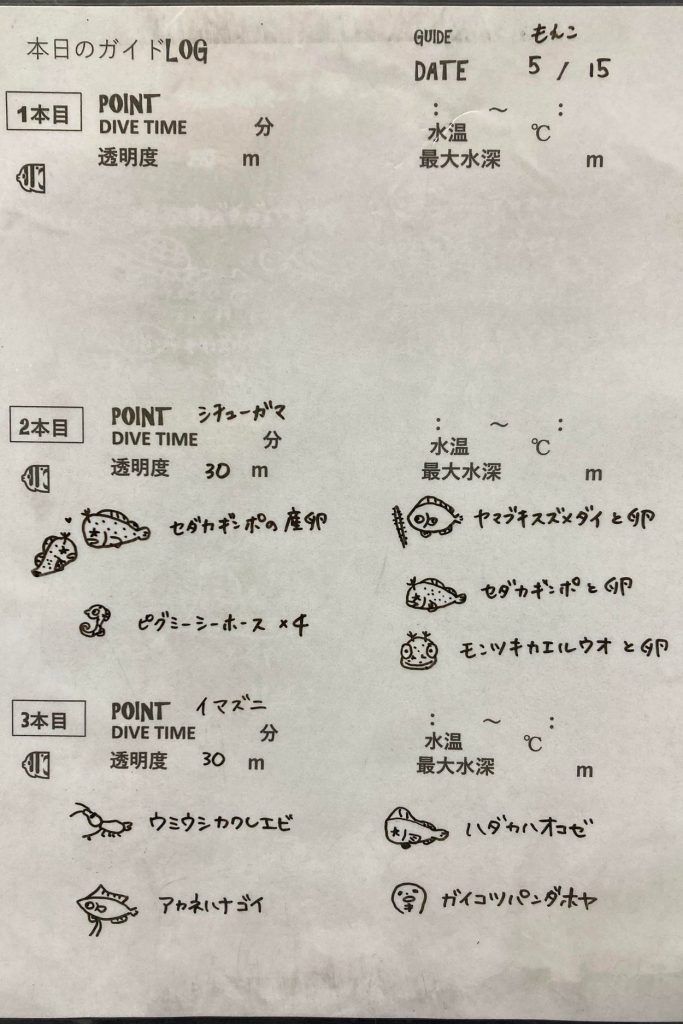 本日のガイドLOG
GUIDE もんこ
DATE 5 / 15
1本目 POINT : ～ :
DIVE TIME 分 水温 ℃
透明度 m 最大水深 m
2本目 POINT シチューガマ : ～ :
DIVE TIME 分 水温 ℃
透明度 30 m 最大水深 m
セダカギンポの産卵 ヤマブキスズメダイと卵
セダカギンポと卵
ピグミーシーホース ×4
モンツキカエルウオと卵
3本目 POINT イマズニ : ～ :
DIVE TIME 分 水温 ℃
透明度 30 m 最大水深 m
ウミウシカクレエビ ハダカハオコゼ
アカネハナゴイ ガイコツパンダホヤ